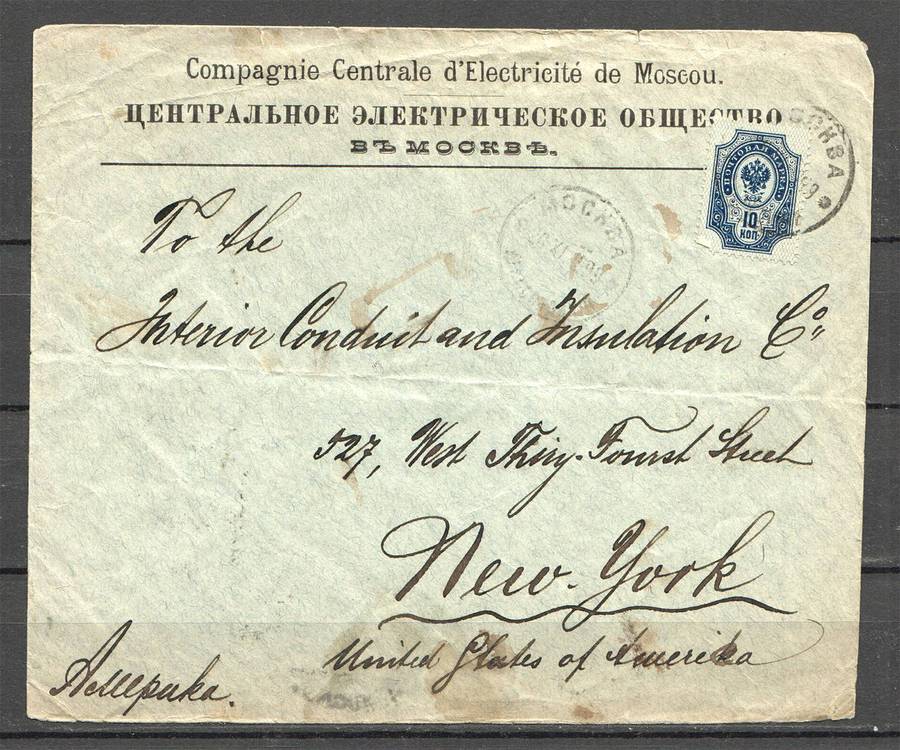 Compagnie Centrale d'Electricité de Moscou.
ЦЕНТРАЛЬНОЕ ЭЛЕКТРИЧЕСКОЕ ОБЩЕСТВО
ВЪ МОСКВѢ.
ПОЧТОВАЯ МАРКА
10
КОП.
МОСКВА
МОСКВА
To the
Interior Conduit and Insulation Co
527, West Thiry-Fourst Street
New-York
United States of Amerika
Америка.